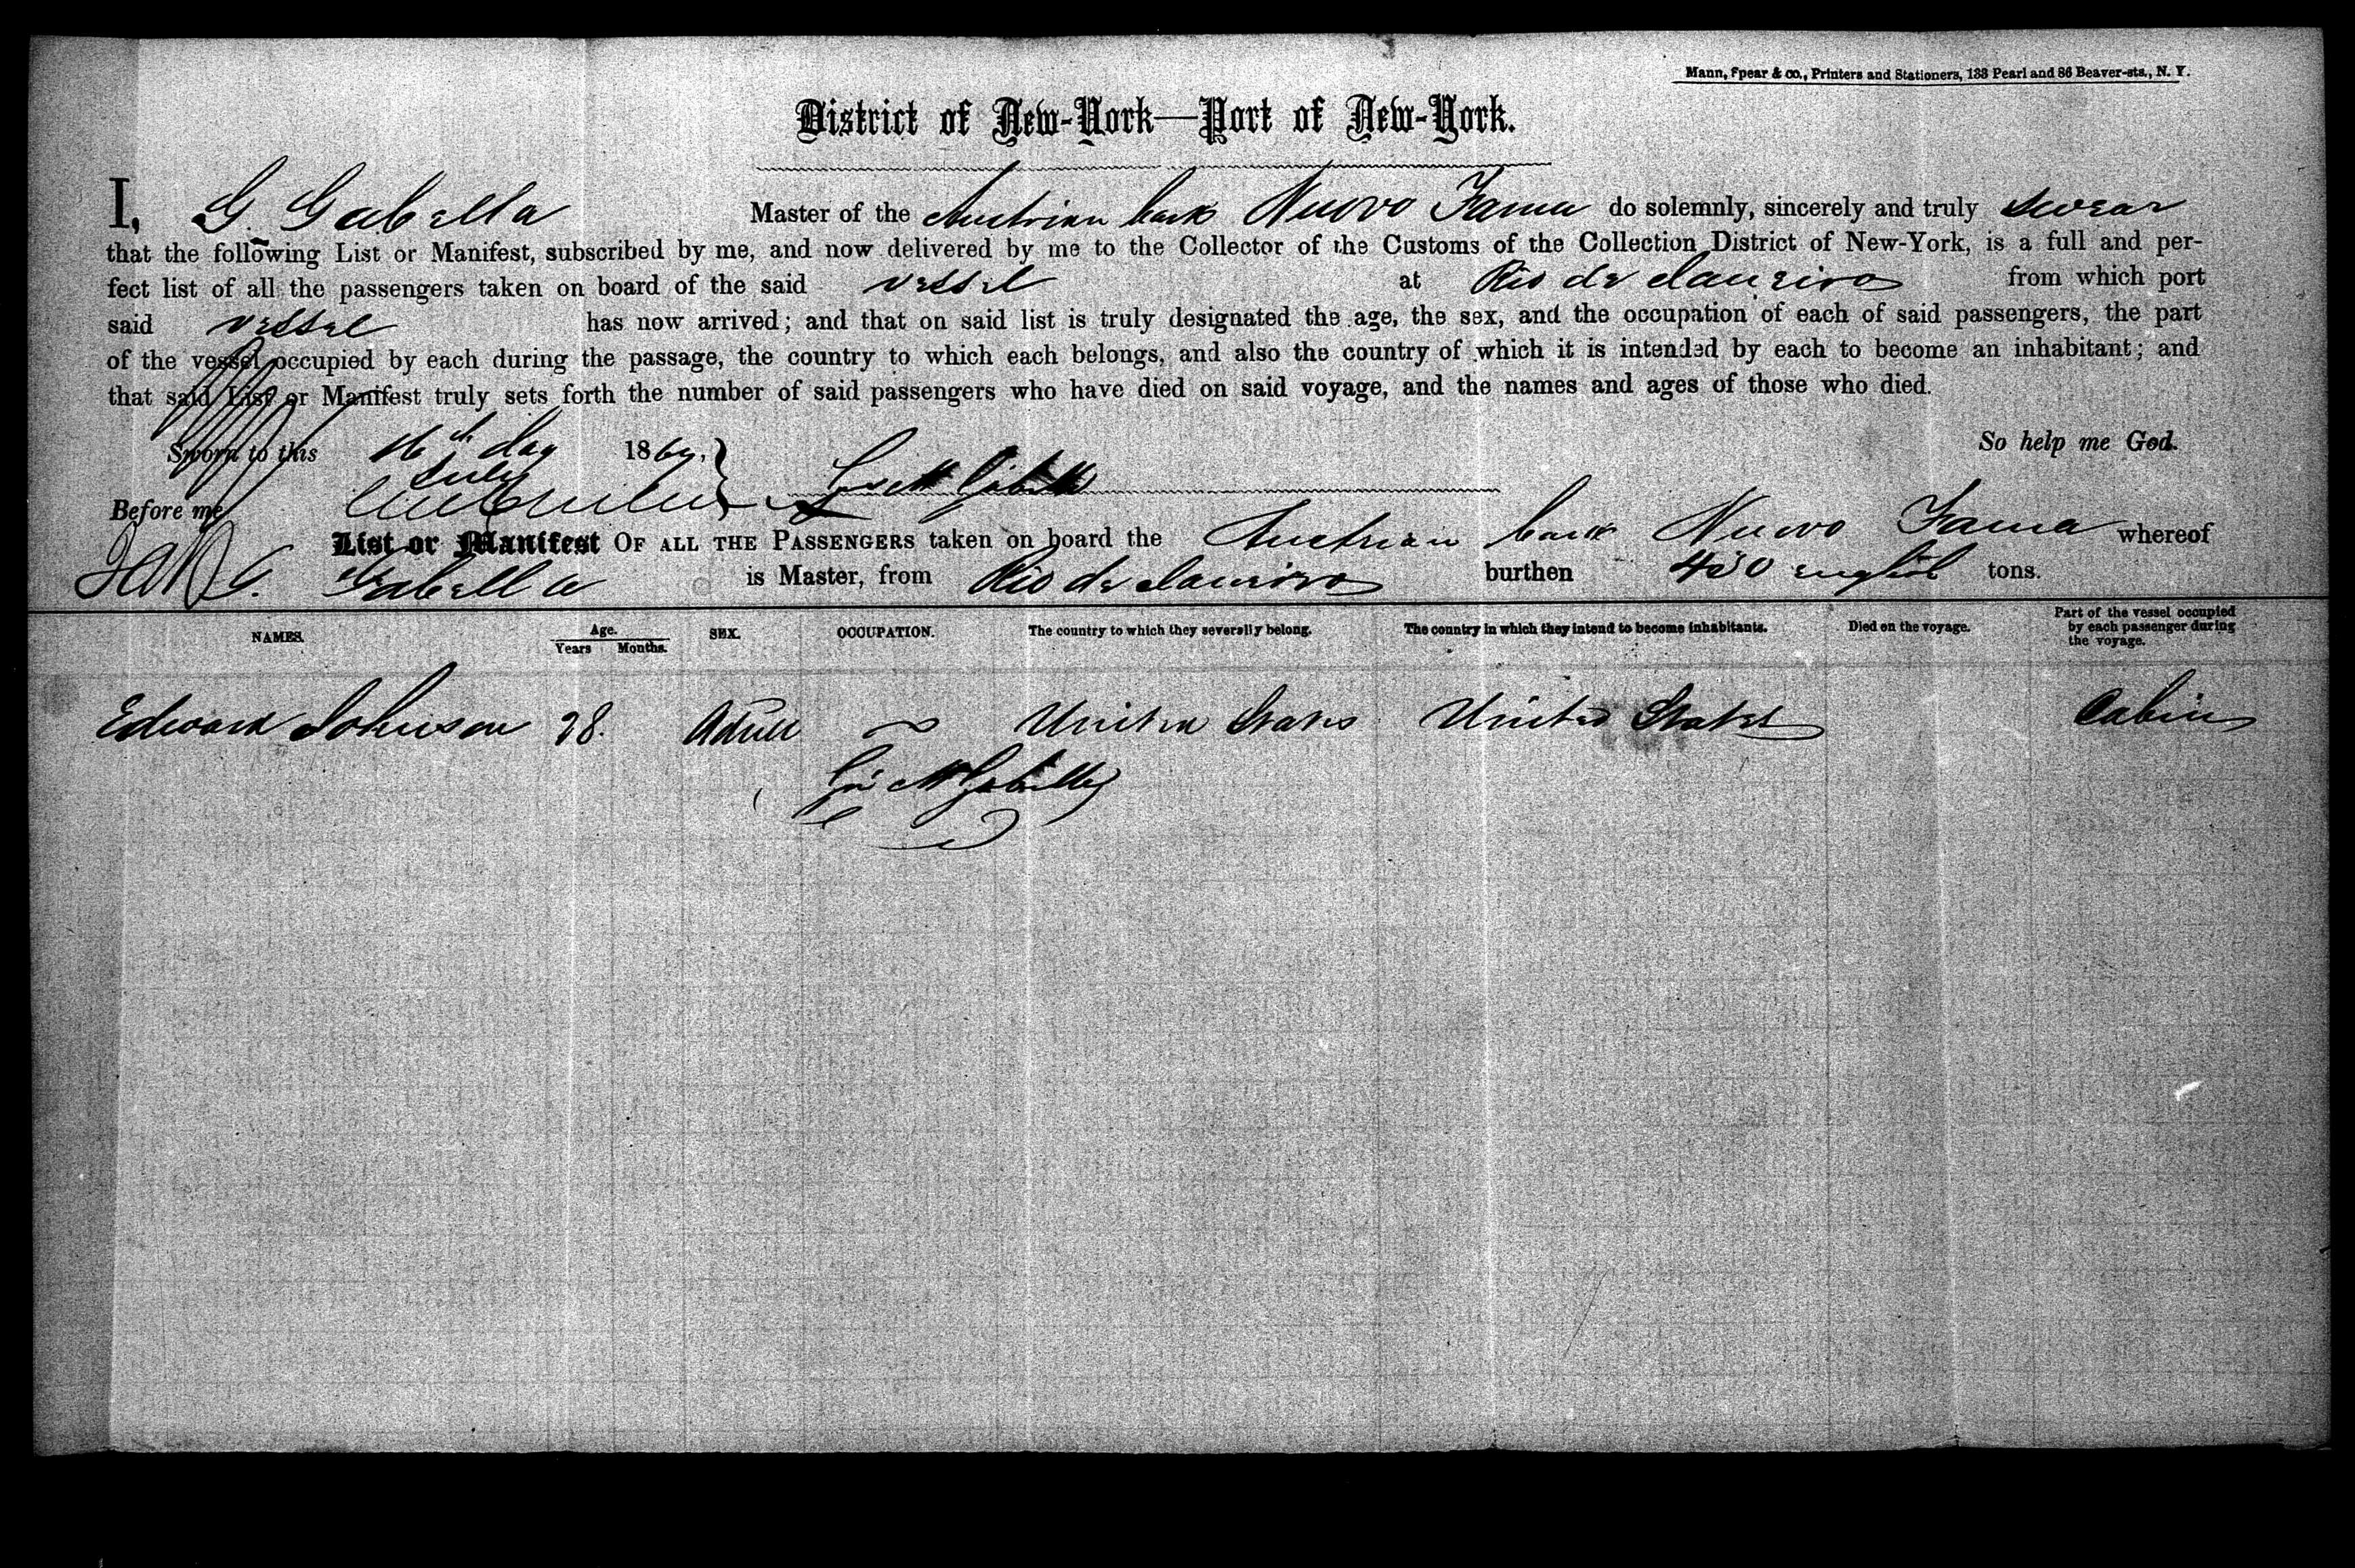 Mann, Spear & co., Printers and Stationers, 133 Pearl and 86 Beaver-sts., N. Y.
District of New-York—Port of New-York.
I, G. Gabella Master of the Austrian bark Nuovo Fama do solemnly, sincerely and truly swear
that the following List or Manifest, subscribed by me, and now delivered by me to the Collector of the Customs of the Collection District of New-York, is a full and per-
fect list of all the passengers taken on board of the said vessel at Rio de Janeiro from which port
said vessel has now arrived; and that on said list is truly designated the age, the sex, and the occupation of each of said passengers, the part
of the vessel occupied by each during the passage, the country to which each belongs, and also the country of which it is intended by each to become an inhabitant; and
that said List or Manifest truly sets forth the number of said passengers who have died on said voyage, and the names and ages of those who died.
So help me God.
Sworn to this 16th day 186
July
Before me
List or Manifest OF ALL THE PASSENGERS taken on board the Austrian bark Nuovo Fama whereof
Gabella is Master, from Rio de Janeiro burthen english tons.
NAMES. Age. Years Months. SEX. OCCUPATION. The country to which they severally belong. The country in which they intend to become inhabitants. Died on the voyage. Part of the vessel occupied by each passenger during the voyage.
Edward Johnson 28. Adult United States United States Cabin